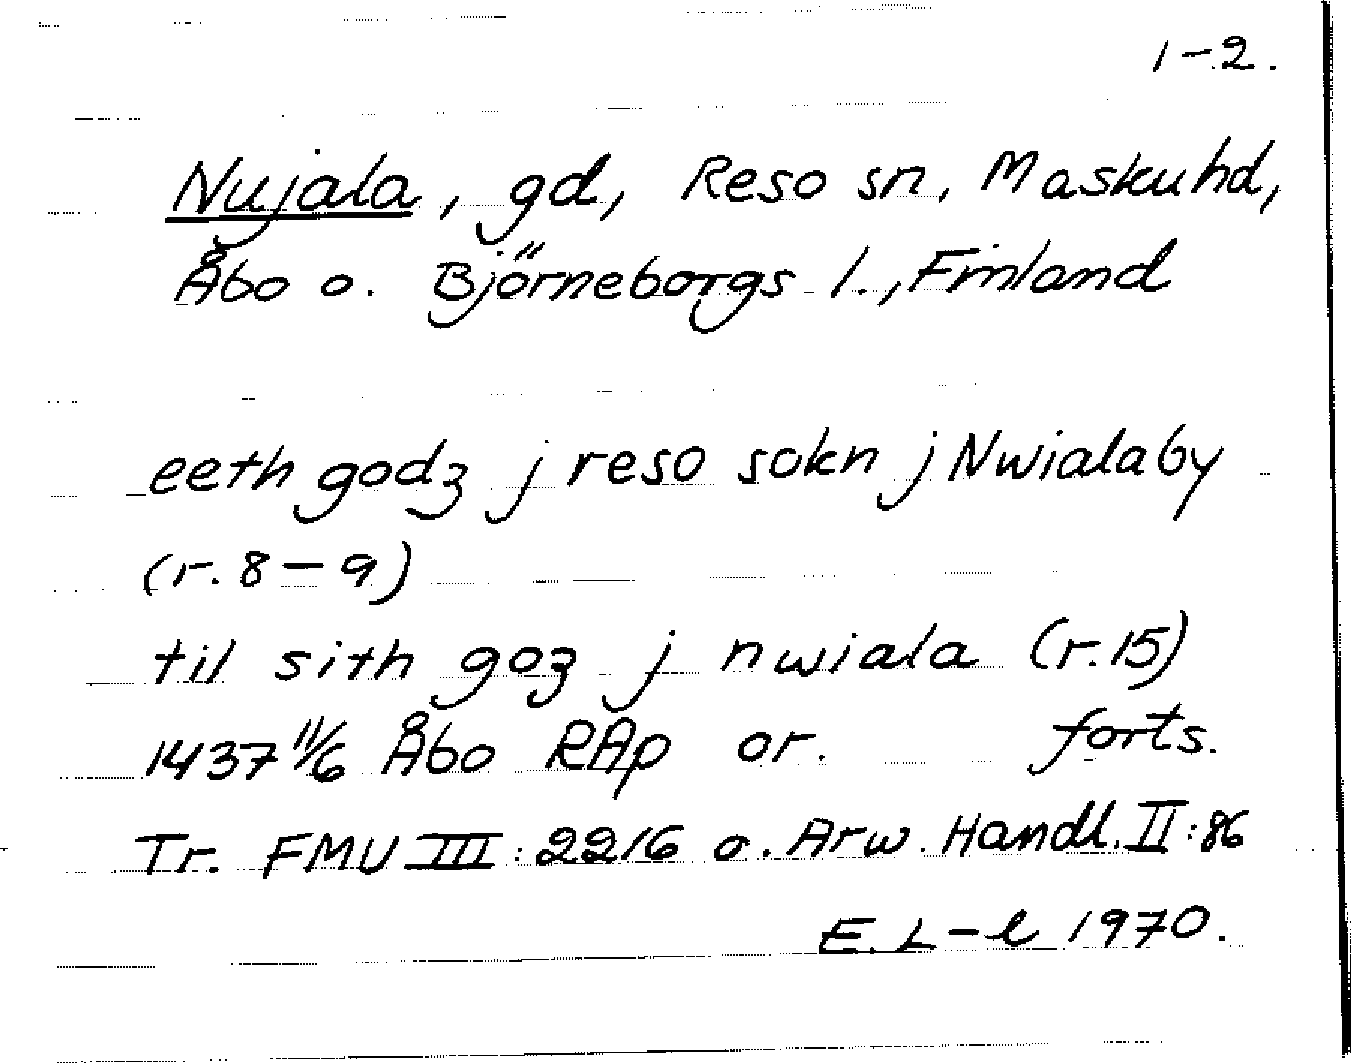 1-2.
Nujala, gd, Reso sn, Maskuhd,
Åbo o. Björneborgs l., Finland
eeth godz j reso sokn j Nwialaby
(r. 8-9)
til sith goz j nwiala (r.15)
1437 11/6 Åbo RAp or. forts.
Tr. FMU III: 2216 o. Arw. Handl. II:86
E. L-l 1970.